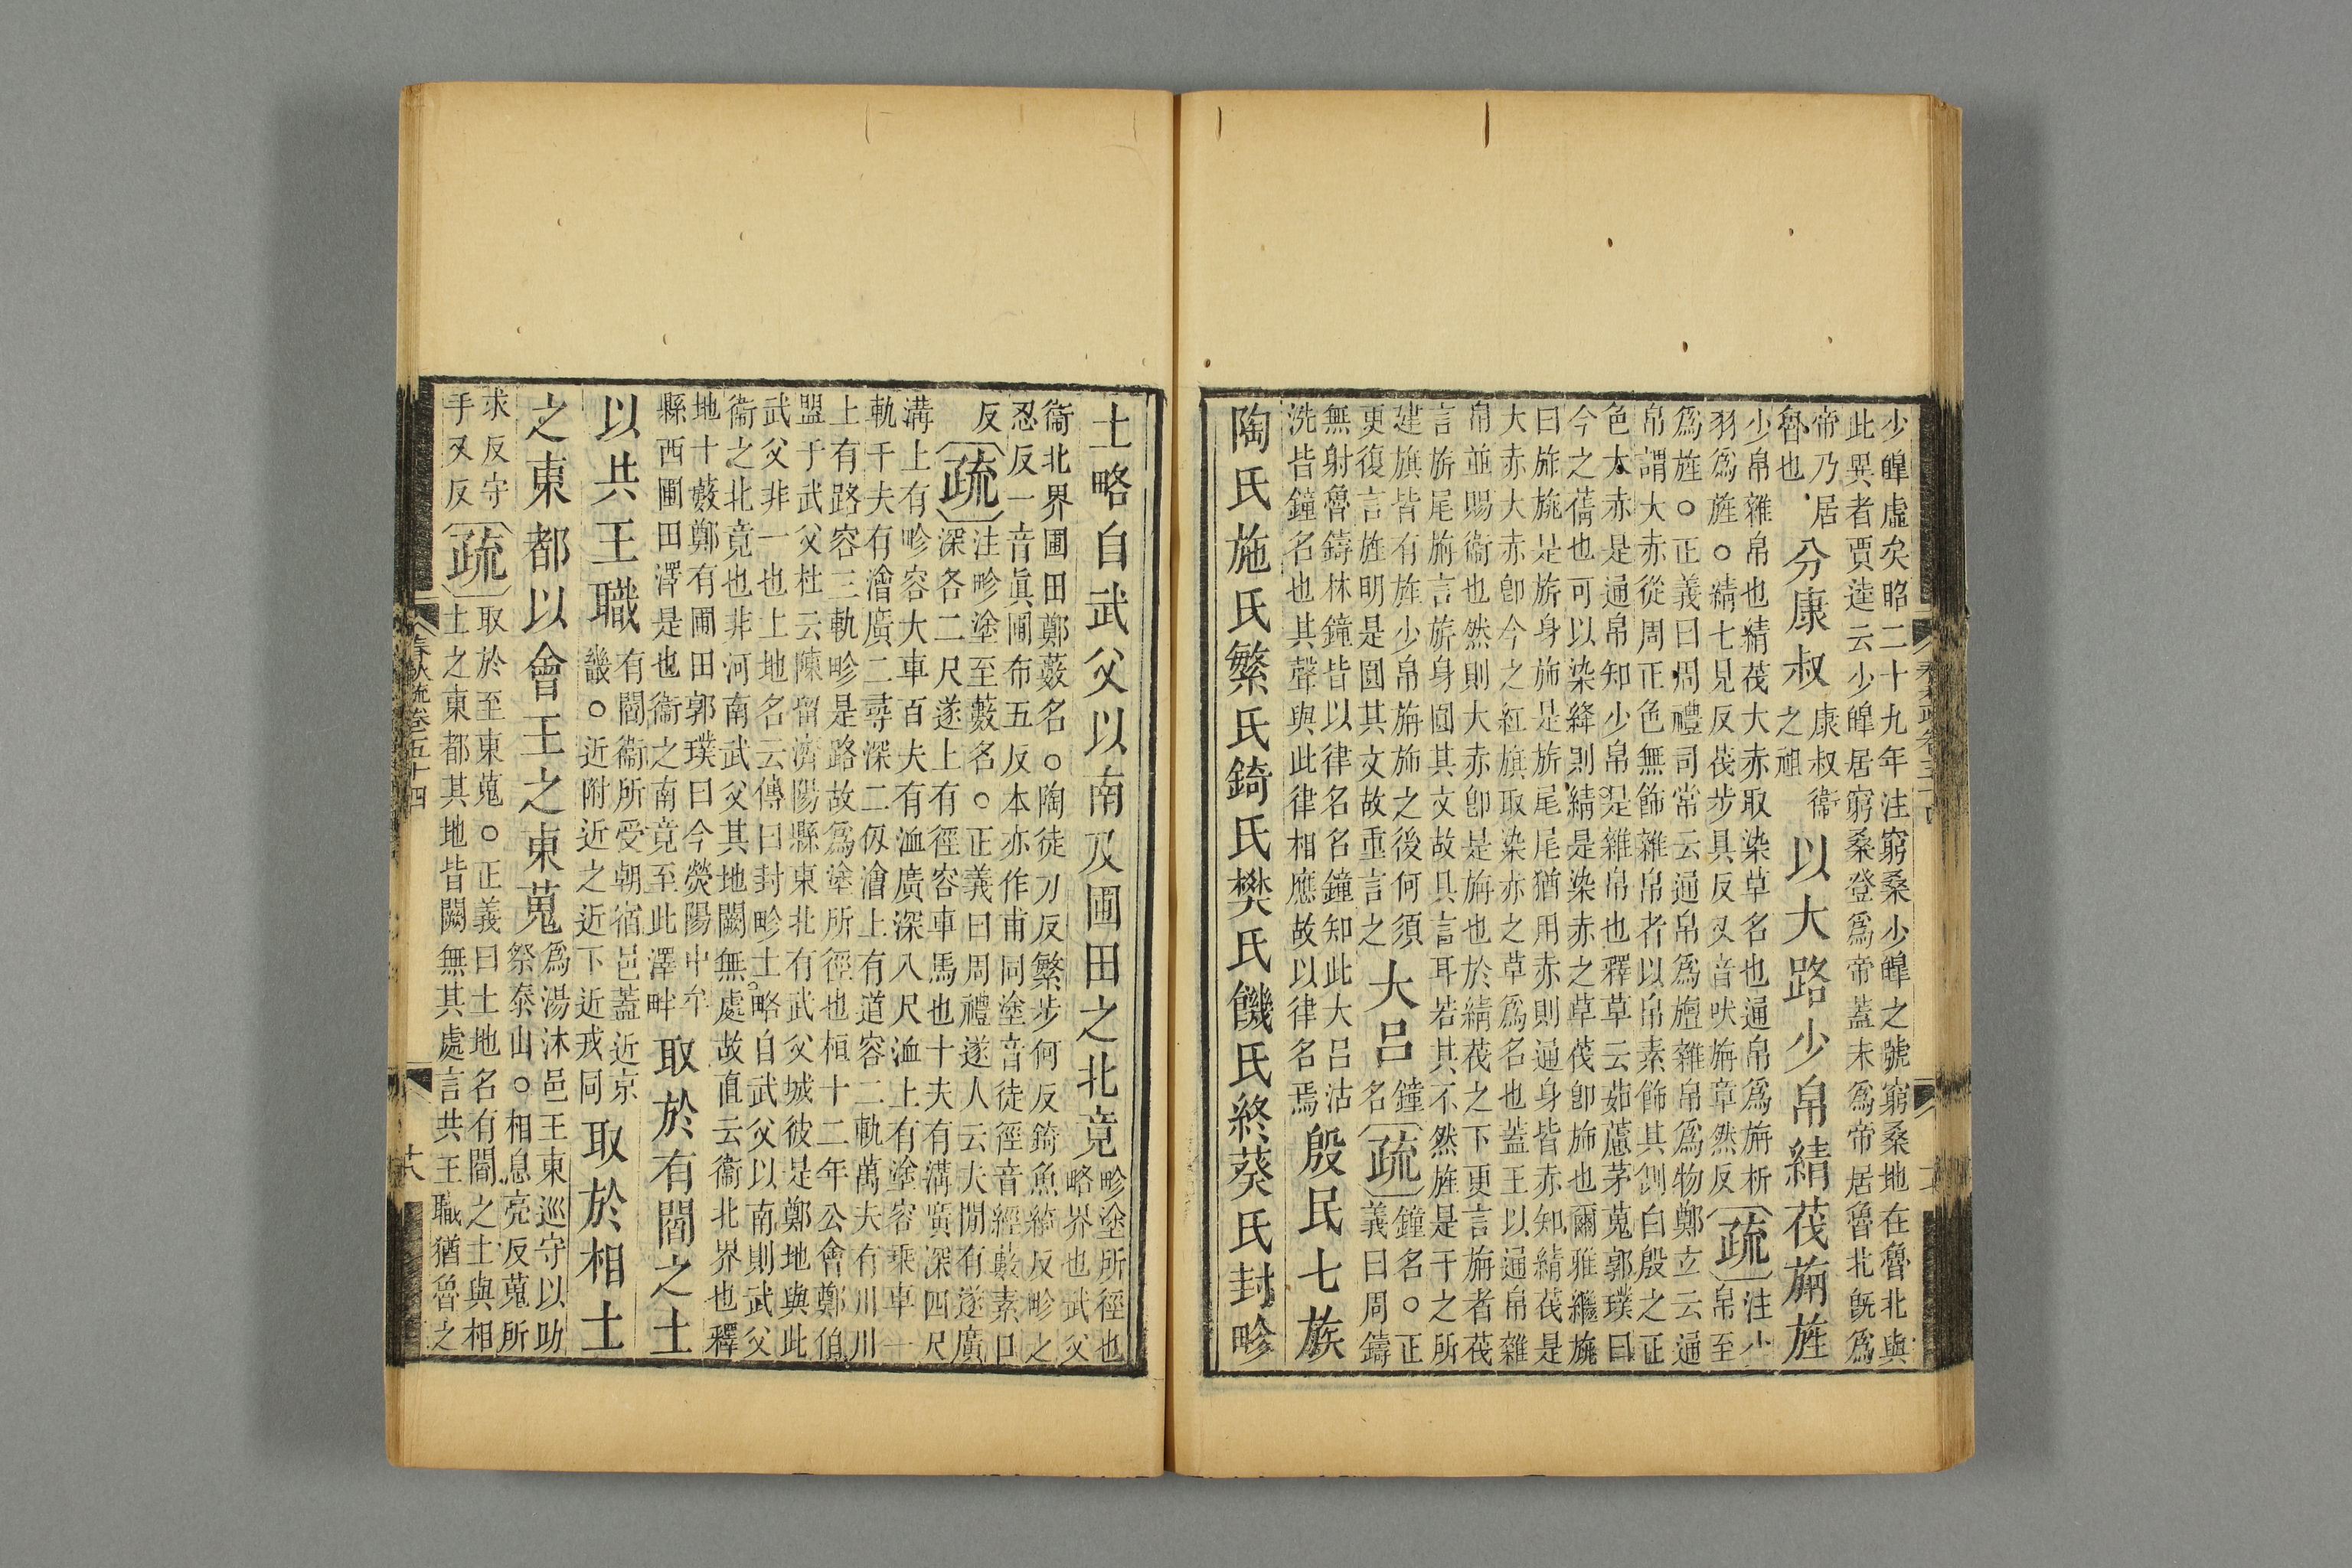 少皥虛矣昭二十九年注窮桑少皥之號窮桑地在魯北與
此異者賈逵云少皥居窮桑登爲帝蓋未爲帝居魯北旣爲
帝乃居
魯也
分康叔
康叔衞
之祖
以大路少帛綪茷旃旌
少帛雜帛也綪茷大赤取染草名也通帛爲旃析
羽爲旌○綪七見反茷步具反又音吠旃章然反
疏
注少
帛至
爲旌○正義曰周禮司常云通帛爲旜雜帛爲物鄭玄云通
帛謂大赤從周正色無飾雜帛者以帛素飾其側白殷之正
色大赤是通帛知少帛是雜帛也釋草云茹藘茅蒐郭璞曰
今之蒨也可以染絳則綪是染赤之草茷卽旆也爾雅繼旐
曰旆旐是旂身旆是旂尾尾猶用赤則通身皆赤知綪茷是
大赤大赤卽今之紅旗取染赤之草爲名也蓋王以通帛雜
帛並賜衞也然則大赤卽是旃也於綪茷之下更言旃者茷
言旂尾旃言旂身圓其文故具言耳若其不然旌是干之所
建旗皆有旌少帛旃旆之後何須
更復言旌明是圓其文故重言之
大呂
鐘
名
疏
鐘名○正
義曰周鑄
無射魯鑄林鐘皆以律名名鐘知此大呂沽
洗皆鐘名也其聲與此律相應故以律名焉
殷民七族
陶氏施氏繁氏錡氏樊氏饑氏終葵氏封畛
土略自武父以南及圃田之北竟
畛塗所徑也
略界也武父
衞北界圃田鄭藪名○陶徒刀反繁步何反錡魚綺反畛之
忍反一音眞圃布五反本亦作甫同塗音徒徑音經藪素口
反
疏
注畛塗至藪名○正義曰周禮遂人云夫閒有遂廣
深各二尺遂上有徑容車馬也十夫有溝廣深四尺
溝上有畛容大車百夫有洫廣深八尺洫上有塗容乘車一
軌千夫有澮廣二尋深二仭澮上有道容二軌萬夫有川川
上有路容三軌畛是路故爲塗所徑也桓十二年公會鄭伯
盟于武父杜云陳留濟陽縣東北有武父城彼是鄭地與此
武父非一也上地名云傳曰封畛土略自武父以南則武父
衞之北竟也非河南武父其地闕無處故直云衞北界也釋
地十藪鄭有圃田郭璞曰今滎陽中牟
縣西圃田澤是也衞之南竟至此澤畔
取於有閻之土
以共王職
有閻衞所受朝宿邑蓋近京
畿○近附近之近下近戎同
取於相土
之東都以會王之東蒐
爲湯沐邑王東巡守以助
祭泰山○相息亮反蒐所
求反守
手又反
疏
取於至東蒐○正義曰土地名有閻之土與相
土之東都其地皆闕無其處言共王職猶魯之
春秋疏卷五十四
十六